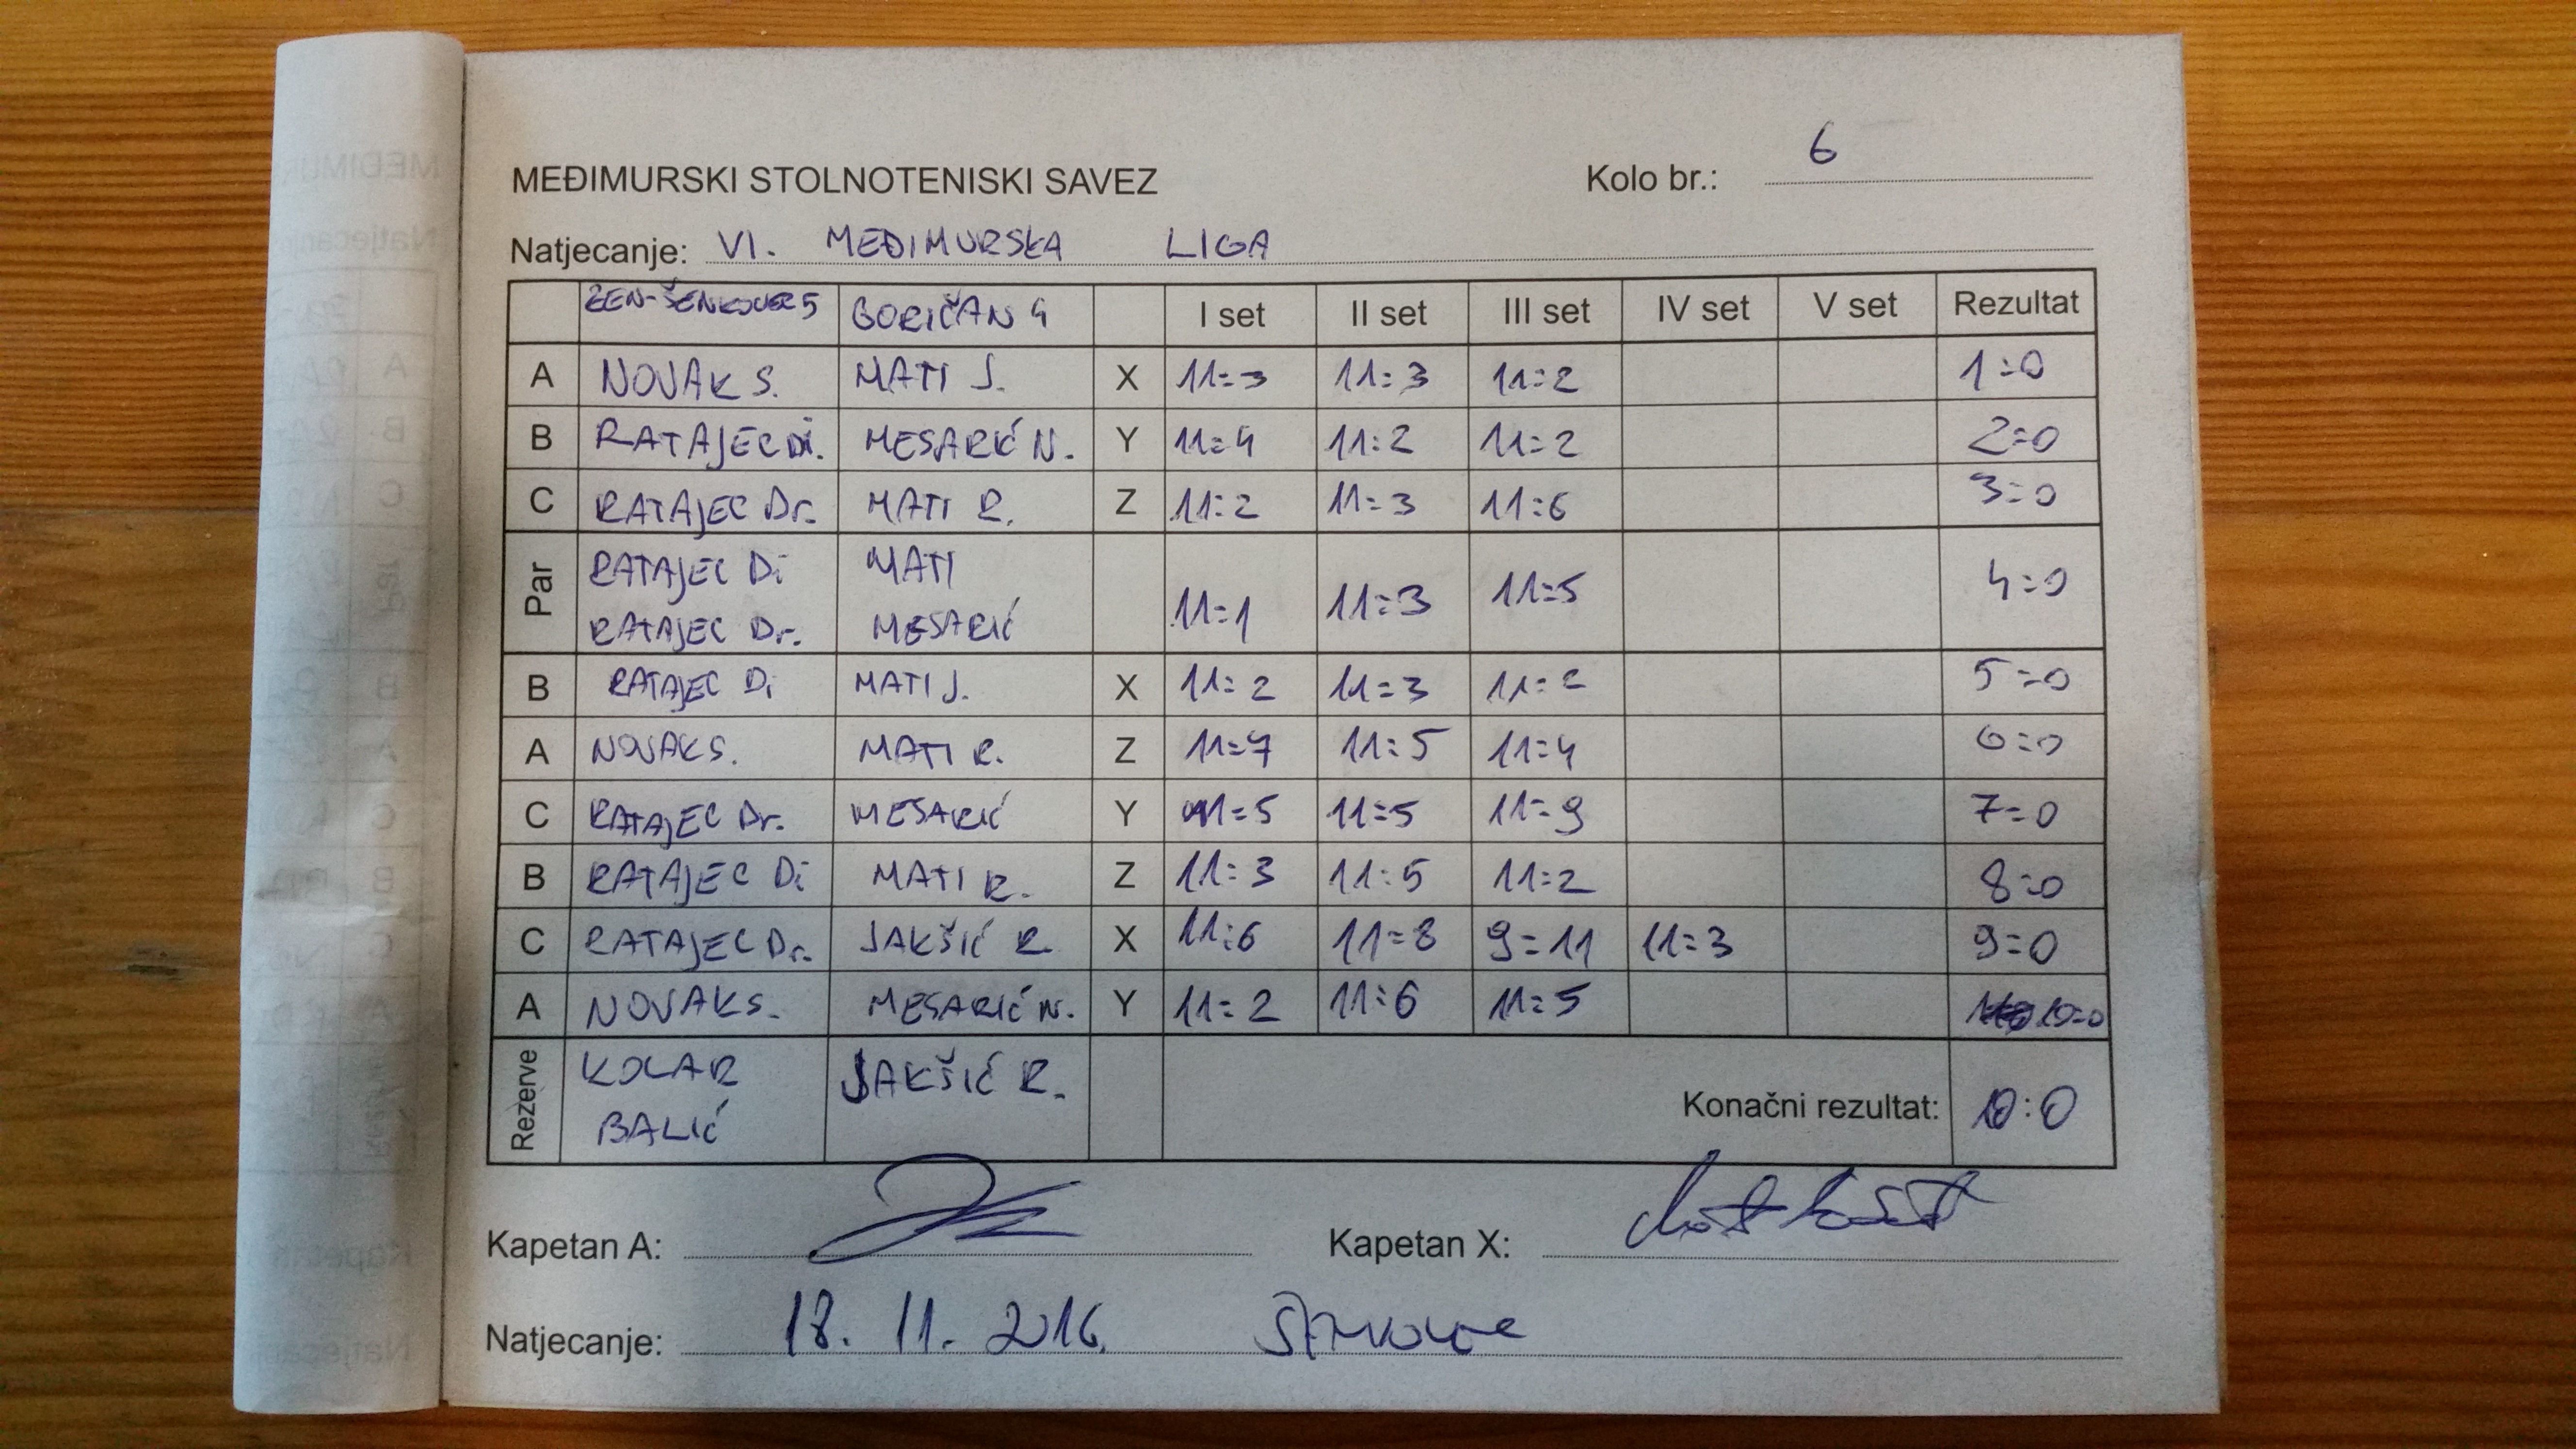 MEĐIMURSKI STOLNOTENISKI SAVEZ Kolo br.: 6
Natjecanje: VI. MEĐIMURSKA LIGA
ZEN-ŠENKOVEC 5 GORIČAN 4 I set II set III set IV set V set Rezultat
A NOVAK S. MATI J. X 11:3 11:3 11:2 1:0
B RATAJEC Di. MESARIĆ N. Y 11:4 11:2 11:2 2:0
C RATAJEC Dr. MATI R. Z 11:2 11:3 11:6 3:0
Par RATAJEC Di MATI 11:1 11:3 11:5 4:0
RATAJEC Dr. MESARIĆ
B RATAJEC Di MATI J. X 11:2 11:3 11:2 5:0
A NOVAK S. MATI R. Z 11:7 11:5 11:4 6:0
C RATAJEC Dr. MESARIĆ Y 11:5 11:5 11:9 7:0
B RATAJEC Di MATI R. Z 11:3 11:5 11:2 8:0
C RATAJEC Dr. JAKŠIĆ R X 11:6 11:8 9:11 11:3 9:0
A NOVAK S. MESARIĆ N. Y 11:2 11:6 11:5 10:0
Rezerve KOLAR JAKŠIĆ R. Konačni rezultat: 10:0
BALIĆ
Kapetan A: Kapetan X:
Natjecanje: 18. 11. 2016.